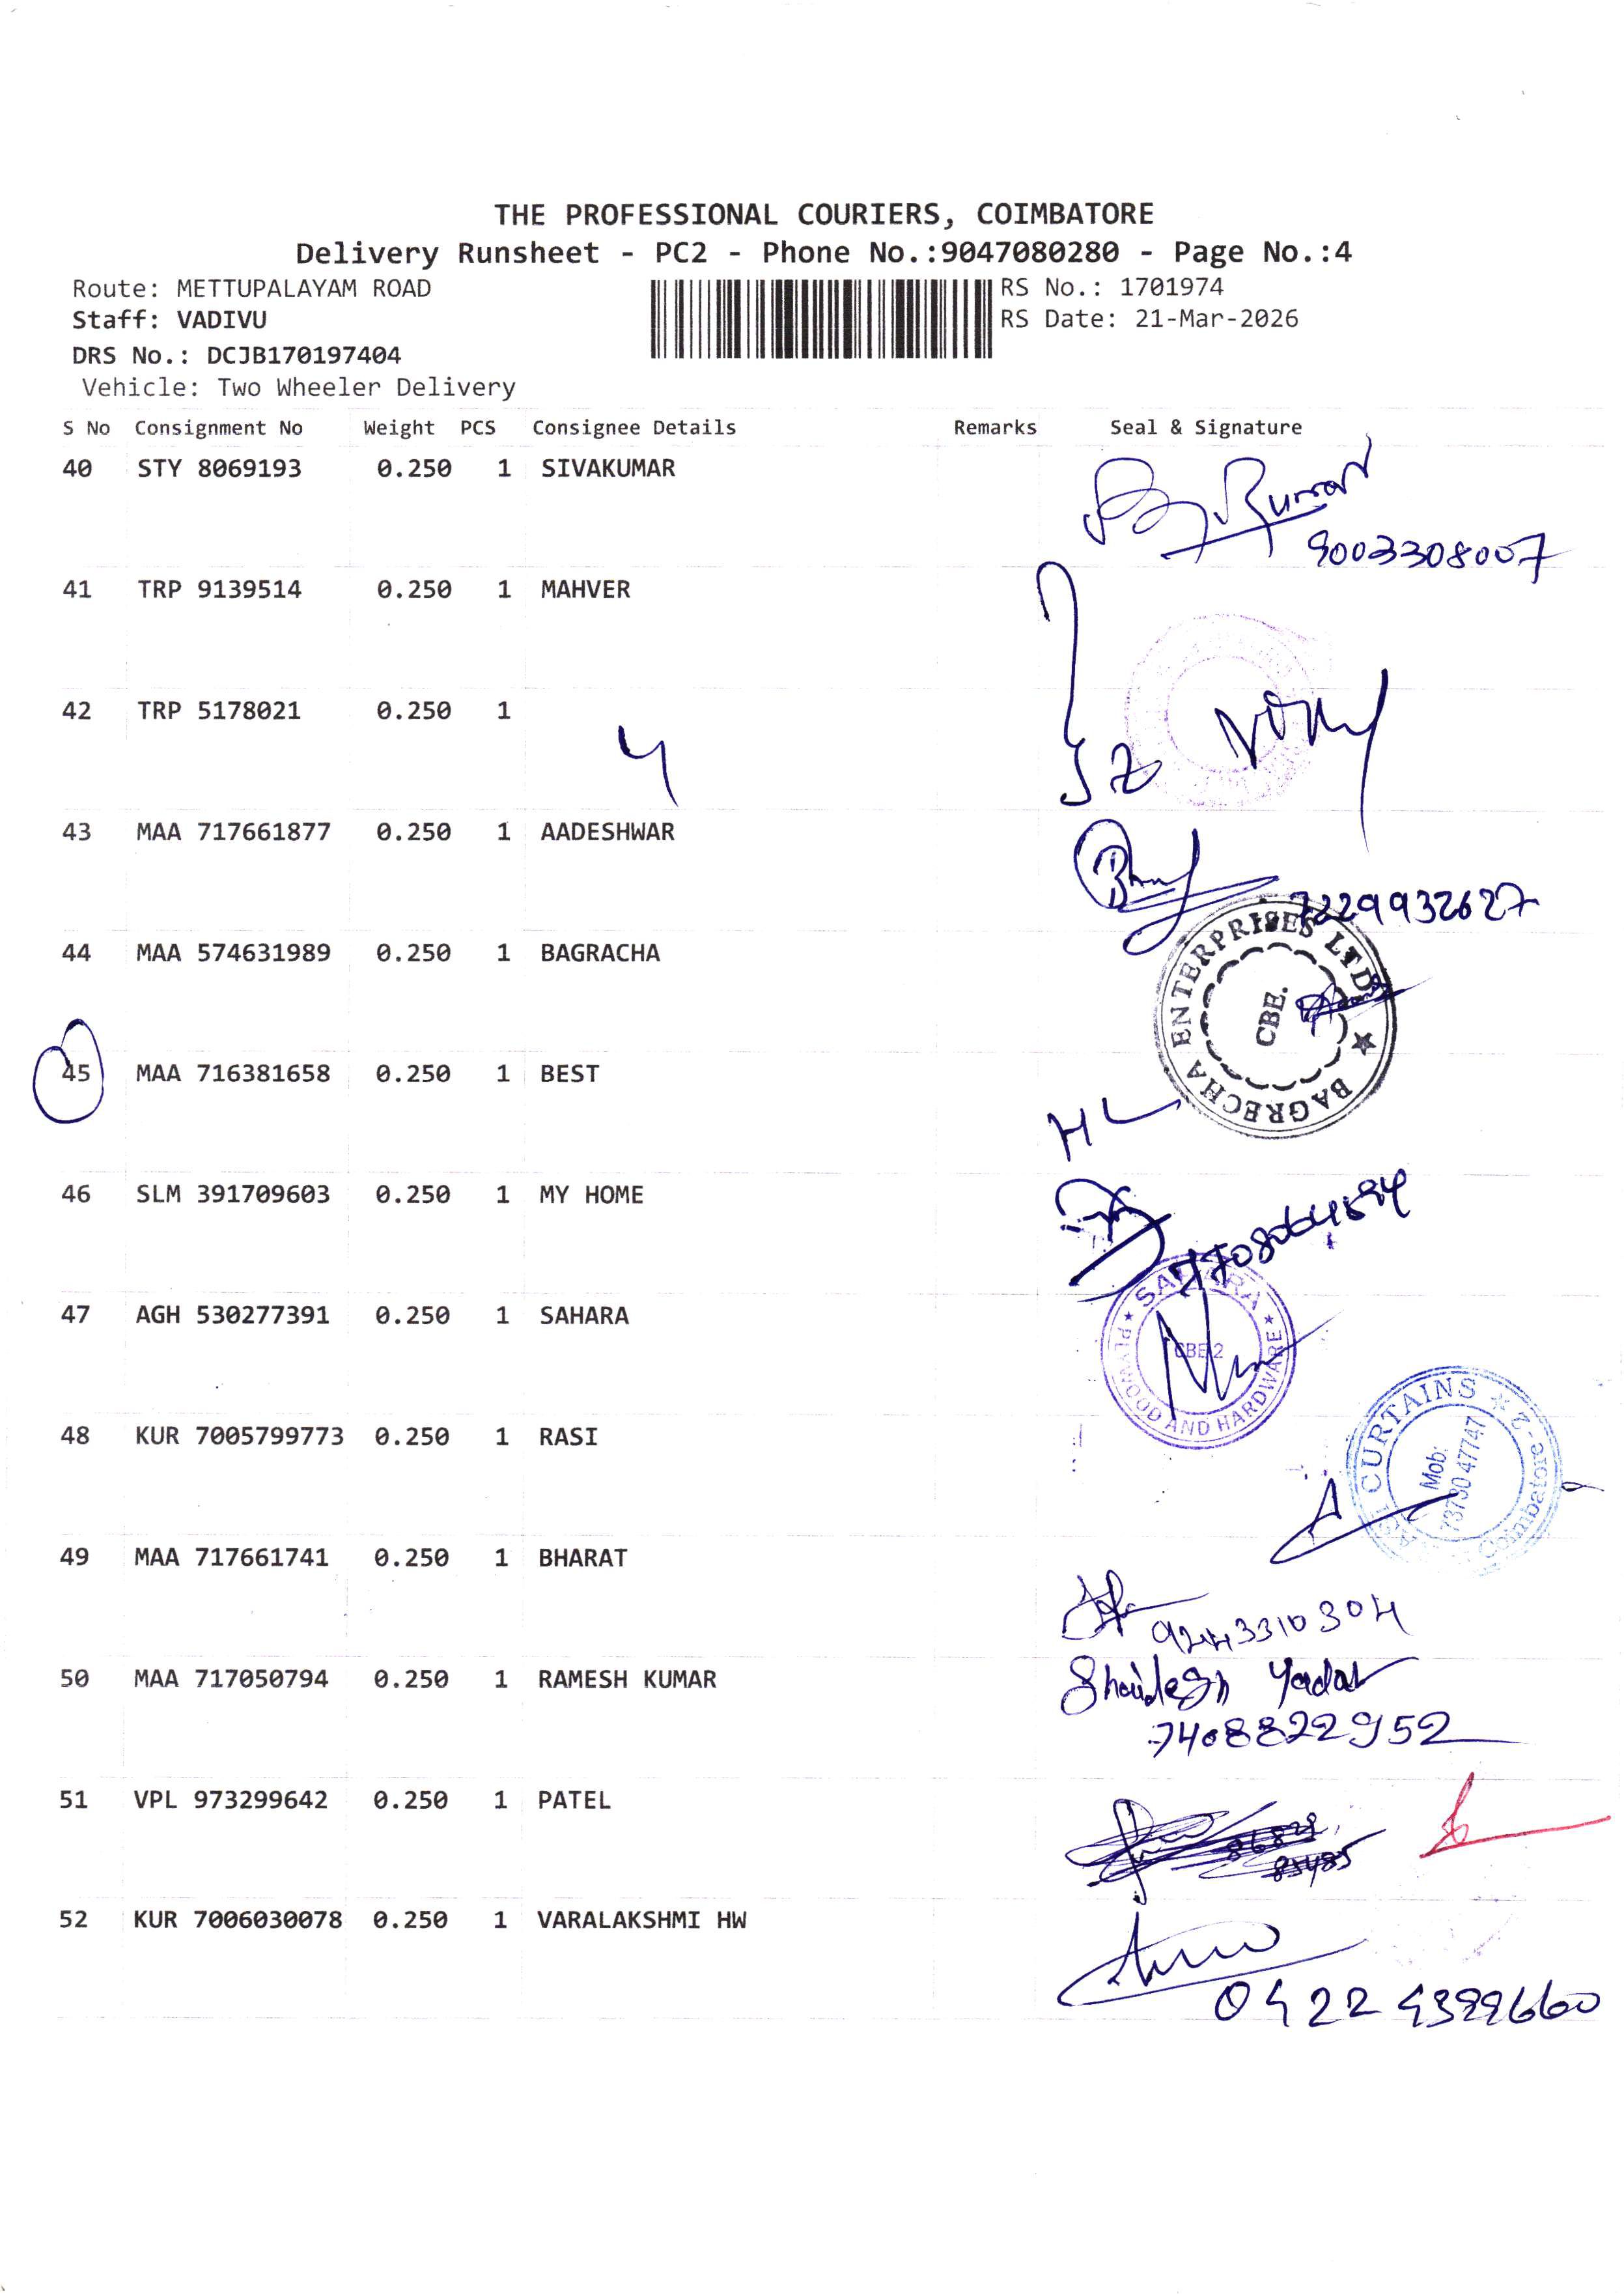 THE PROFESSIONAL COURIERS, COIMBATORE
Delivery Runsheet - PC2 - Phone No.:9047080280 - Page No.:4
Route: METTUPALAYAM ROAD
RS No.: 1701974
Staff: VADIVU
RS Date: 21-Mar-2026
DRS No.: DCJB170197404
Vehicle: Two Wheeler Delivery
S No Consignment No Weight PCS Consignee Details Remarks Seal & Signature
40 STY 8069193 0.250 1 SIVAKUMAR
Kumar
9003308007
41 TRP 9139514 0.250 1 MAHVER
42 TRP 5178021 0.250 1
43 MAA 717661877 0.250 1 AADESHWAR
7229932627
44 MAA 574631989 0.250 1 BAGRACHA
BAGRECHA ENTERPRISES LTD
CBE.
45 MAA 716381658 0.250 1 BEST
46 SLM 391709603 0.250 1 MY HOME
47 AGH 530277391 0.250 1 SAHARA
SAHARA
PLYWOOD AND HARDWARE
CBE 2
48 KUR 7005799773 0.250 1 RASI
CURTAINS
Mob:
73730 47747
Coimbatore-2
49 MAA 717661741 0.250 1 BHARAT
50 MAA 717050794 0.250 1 RAMESH KUMAR
Yadav
7408822952
51 VPL 973299642 0.250 1 PATEL
52 KUR 7006030078 0.250 1 VARALAKSHMI HW
0422 4399660